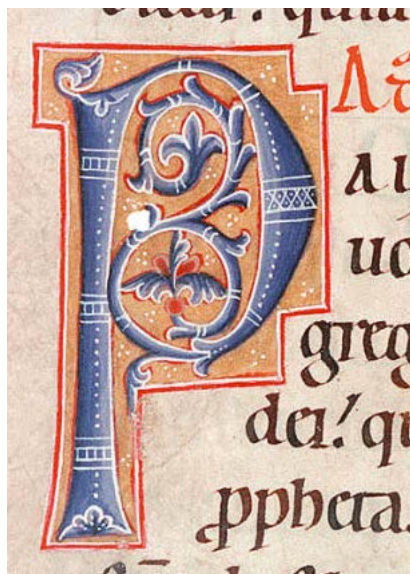 Ad
P
au
uo
greg
dei! qu
ppheta